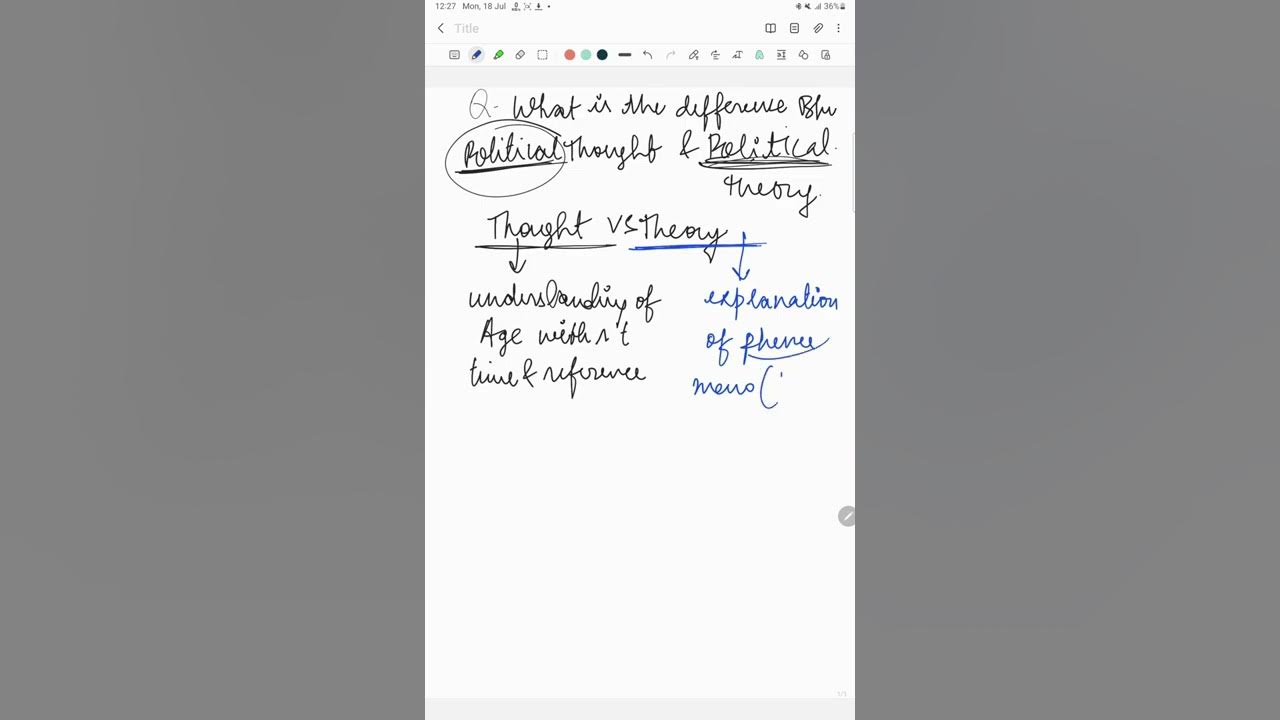 12:27 Mon, 18 Jul 36%
Title
Q- What is the difference Btw
Political Thought & Political
theory.
Thought VS Theory
understanding of
Age with r't
time & reference
explanation
of pheno
meno (
1/1